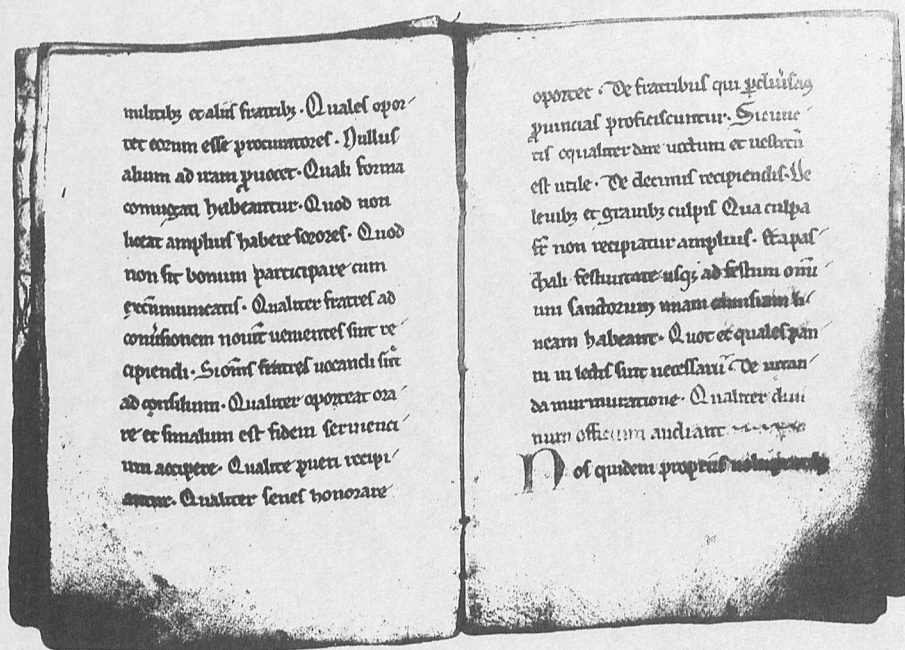 militibꝫ et aliis fratribꝫ · Quales opor
tet eorum esse procuratores · Nullus
alium ad iram ꝓuocet · Quali forma
coniugati habeantur · Quod non
liceat amplius habere sorores · Quod
non sit bonum participare cum
excōmunicatis · Qualiter fratres ad
nouit̄ uenientes sint re
cipiendi · Si om̄s fratres uocandi sūt
ad consilium · Qualiter oporteat ora
re et si malum est fidem seruienci
um accipere · Qualit̄ pueri recipi
antur · Qualiter senes honorare
oportet · De fratribus qui ꝑ diu̾sas
ꝓuincias proficiscuntur · Si cunc
tis equaliter dare uictum et uestitū
est utile · De decimis recipiendis · De
leuibꝫ et grauibꝫ culpis Qua culpa
fr̄ non recipiatur amplius · Et a pas
chali festiuitate usqꝫ ad festum omi
um sanctorum unam li
neam habeant · Quot et quales pan
ni in lectis sint necessarii · De uitan
da murmuratione · Qualiter diui
num officium audiant
Nos quidem propriis